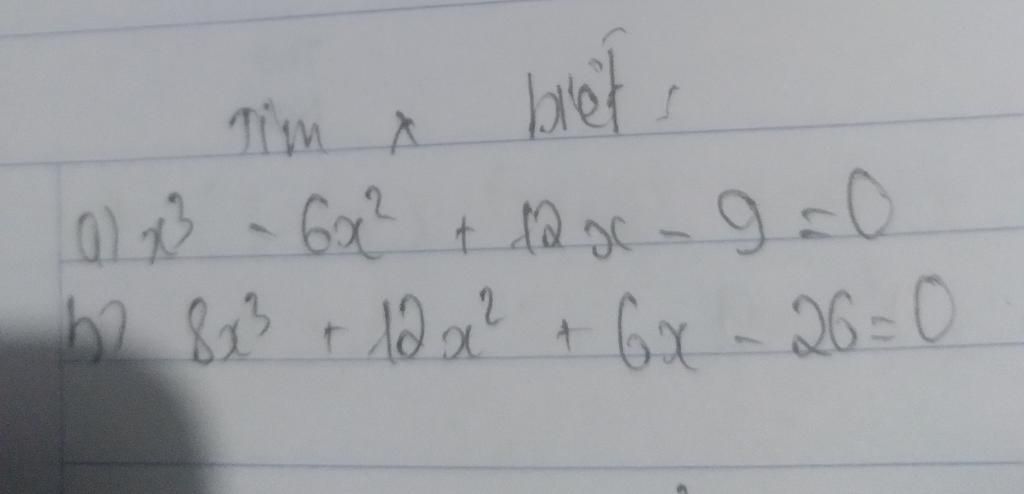 Tìm x biết :
a) x³ - 6x² + 12x - 9 = 0
b) 8x³ + 12x² + 6x - 26 = 0